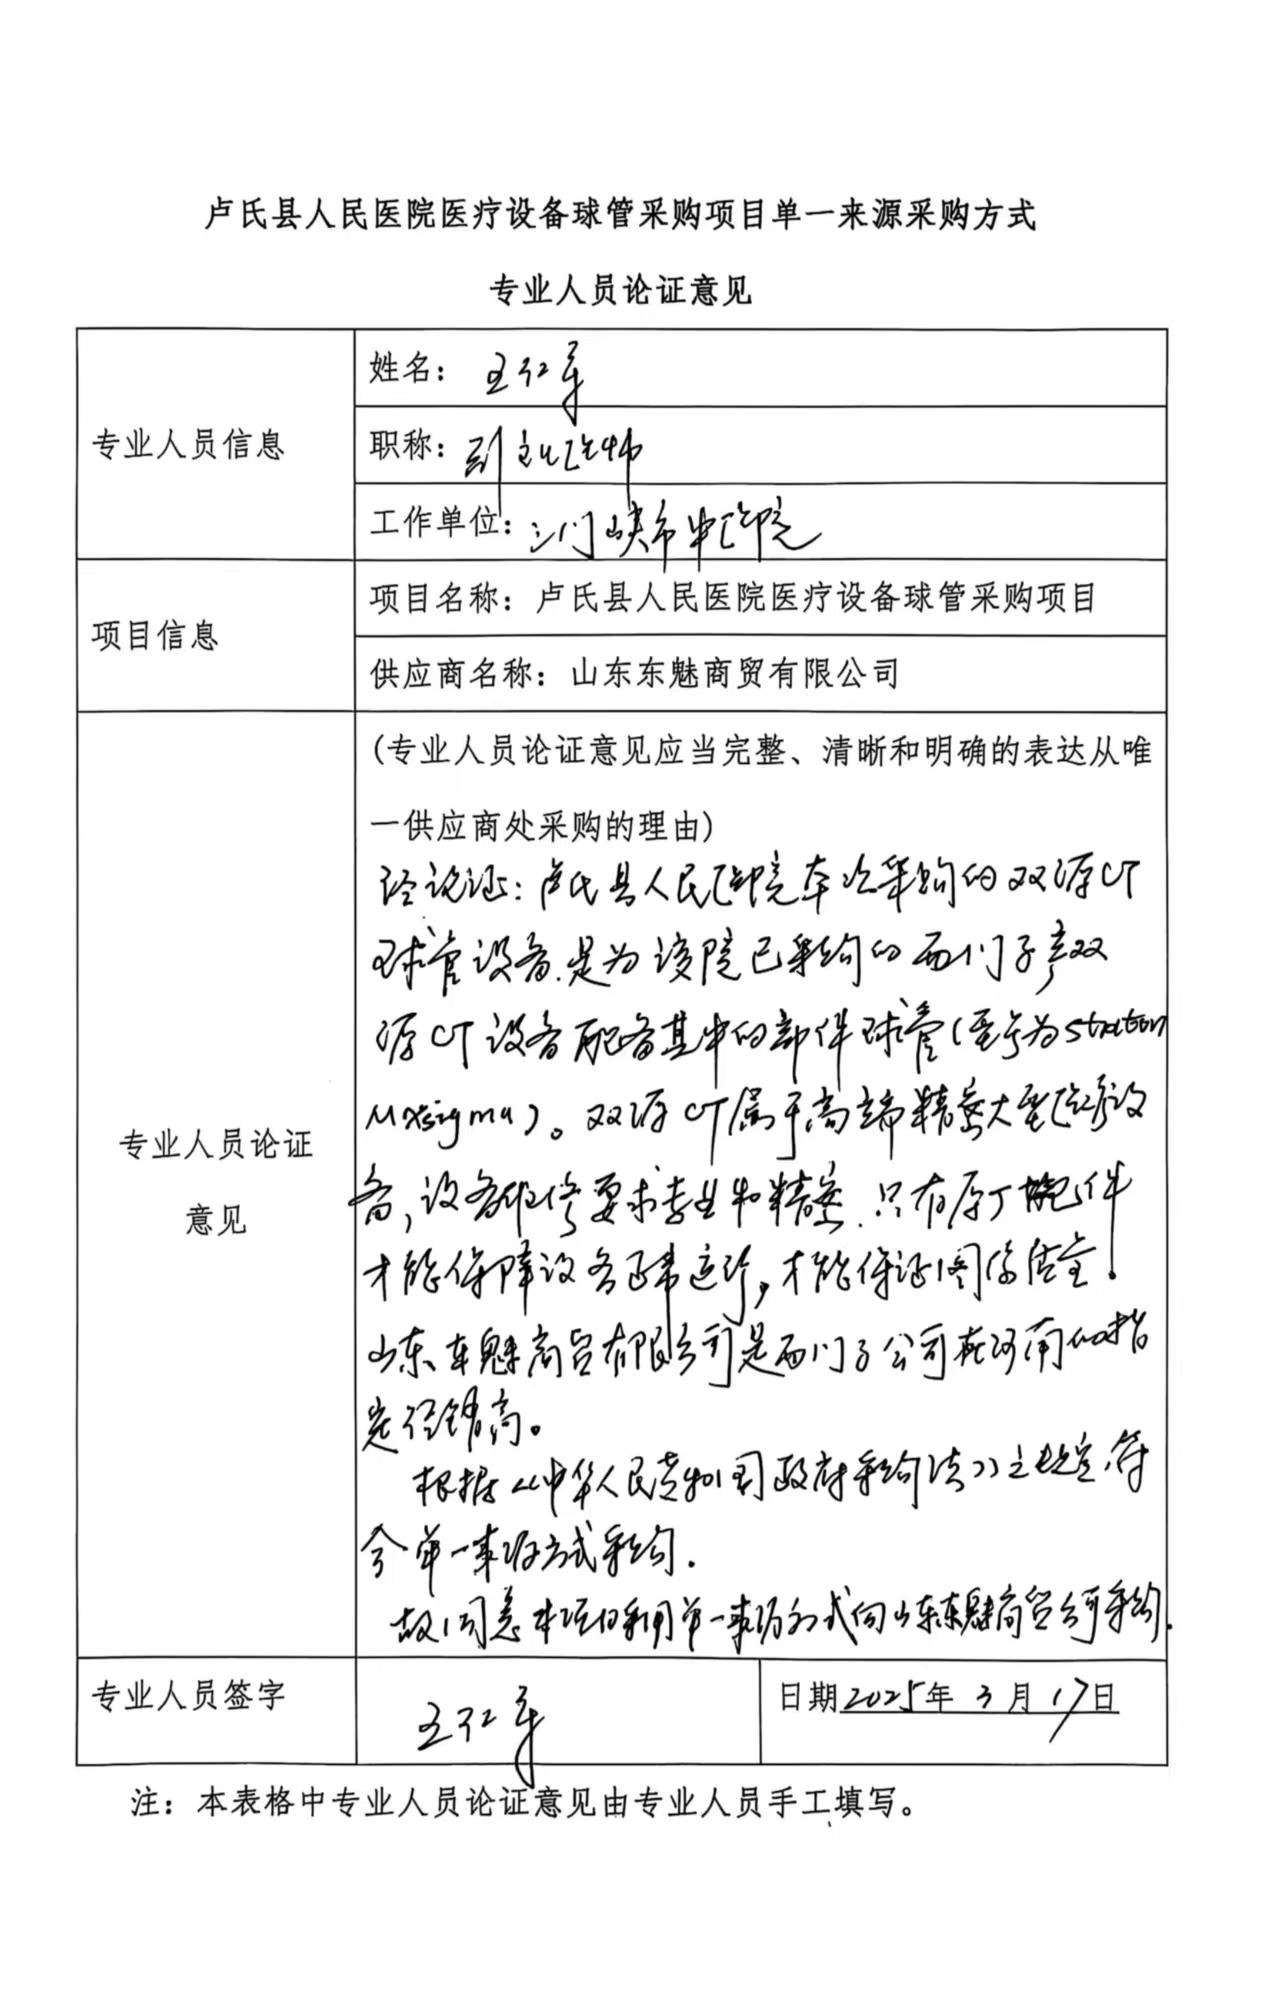 卢氏县人民医院医疗设备球管采购项目单一来源采购方式
专业人员论证意见
专业人员信息
姓名：王红军
职称：副主任医师
工作单位：三门峡市中医院
项目信息
项目名称：卢氏县人民医院医疗设备球管采购项目
供应商名称：山东东魅商贸有限公司
专业人员论证
意见
(专业人员论证意见应当完整、清晰和明确的表达从唯
一供应商处采购的理由)
经论证：卢氏县人民医院本次采购的双源CT
球管设备.是为该院已采购的西门子产双
源CT设备配备其中的部件球管(型号为straton
Mxsigma)。双源CT属于高端精密大型医疗设
备，设备维修要求专业和精密.只有原厂配件
才能保障设备正常运行，才能保证图像质量.
山东东魅商贸有限公司是西门子公司在河南的指
定经销商。
根据《中华人民共和国政府采购法》之规定.符
合单一来源方式采购.
故同意本项目利用单一来源方式向山东东魅商贸公司采购.
专业人员签字
王红军
日期2025年3月17日
注：本表格中专业人员论证意见由专业人员手工填写。